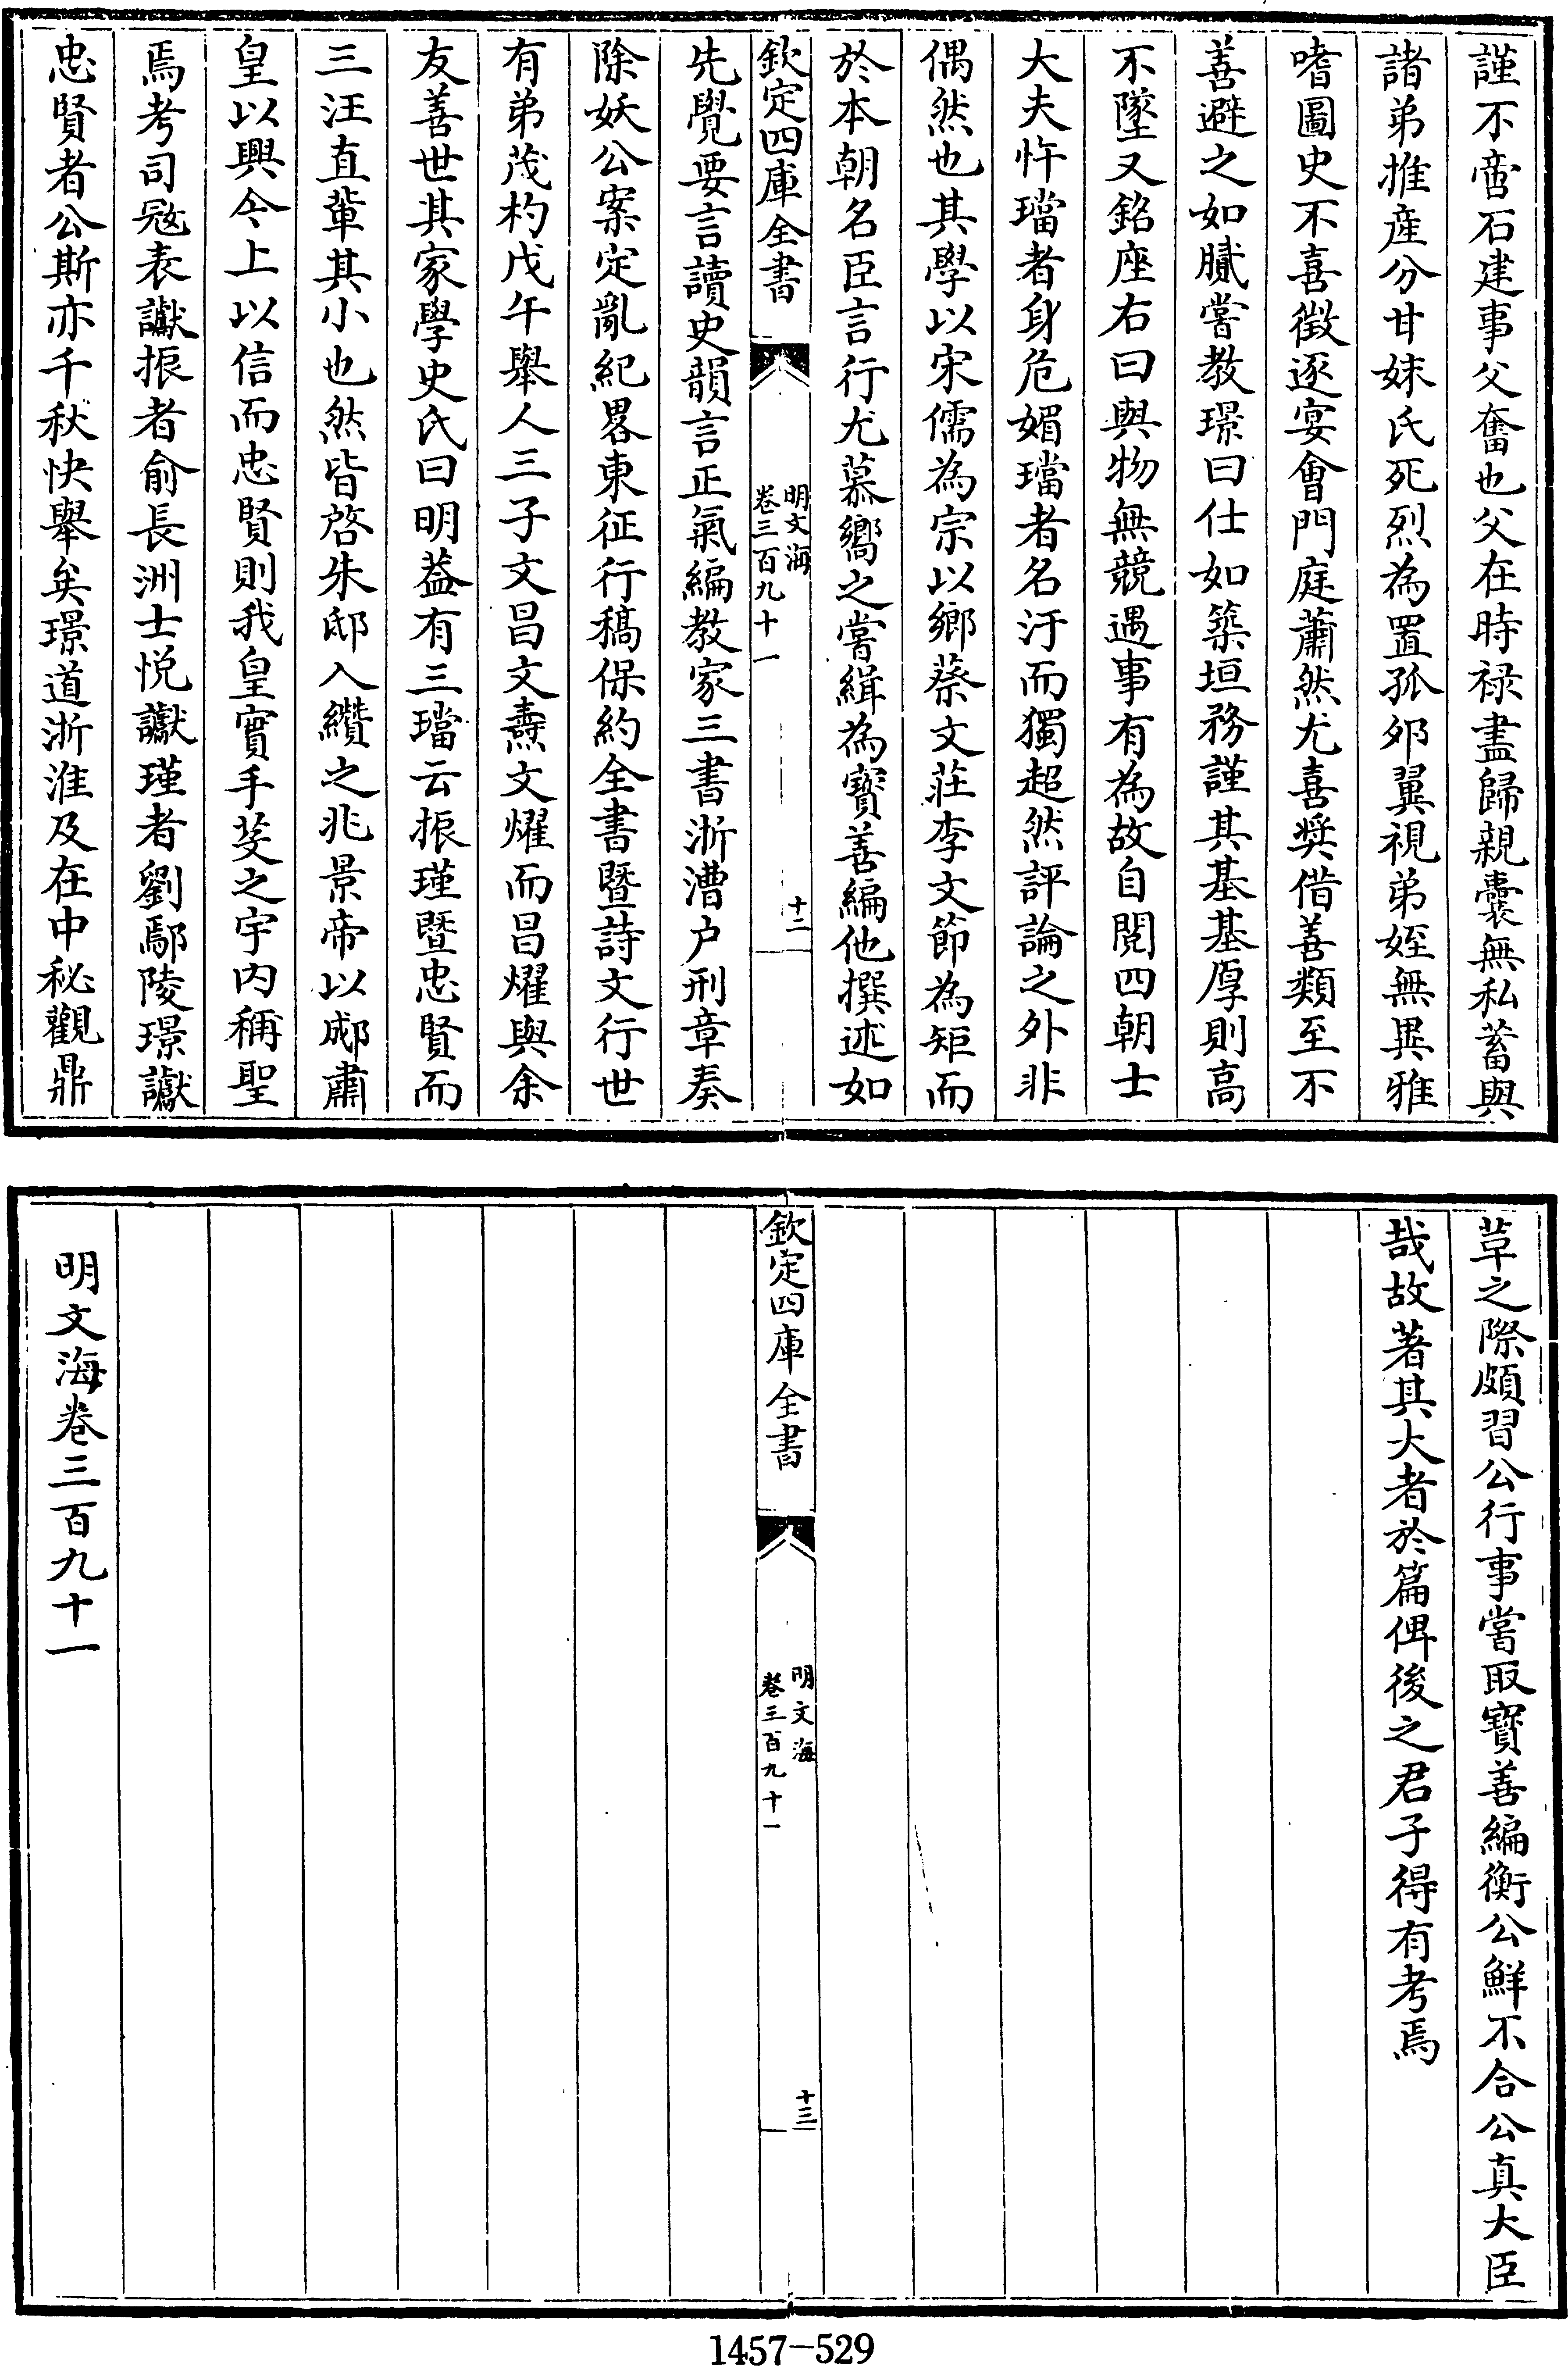 謹不啻石建事父奮也父在時祿盡歸親囊無私蓄與
諸弟推產分甘妹氏死烈為置孤夘翼視弟姪無異雅
嗜圖史不喜徵逐宴會門庭蕭然尤喜奬借善類至不
善避之如膩嘗教璟曰仕如築垣務謹其基基厚則高
不墜又銘座右曰與物無競遇事有為故自閱四朝士
大夫忤璫者身危媚璫者名汙而獨超然評論之外非
偶然也其學以宋儒為宗以鄉蔡文莊李文節為矩而
於本朝名臣言行尤慕嚮之嘗緝為寶善編他撰述如
欽定四庫全書
明文海
卷三百九十一
十二
先覺要言讀史韻言正氣編教家三書浙漕户刑章奏
除妖公案定亂紀畧東征行稿保約全書暨詩文行世
有弟茂杓戊午舉人三子文昌文燾文燿而昌燿與余
友善世其家學史氏曰明葢有三璫云振瑾暨忠賢而
三汪直輩其小也然皆啓朱邸入纘之兆景帝以郕肅
皇以興今上以信而忠賢則我皇實手芟之宇内稱聖
焉考司冦表讞振者俞長洲士悦讞瑾者劉鄢陵璟讞
忠賢者公斯亦千秋快舉矣璟道浙淮及在中秘觀鼎
草之際頗習公行事嘗取寶善編衡公鮮不合公真大臣
哉故著其大者於篇俾後之君子得有考焉
欽定四庫全書
明文海
卷三百九十一
十三
明文海卷三百九十一
1457-529